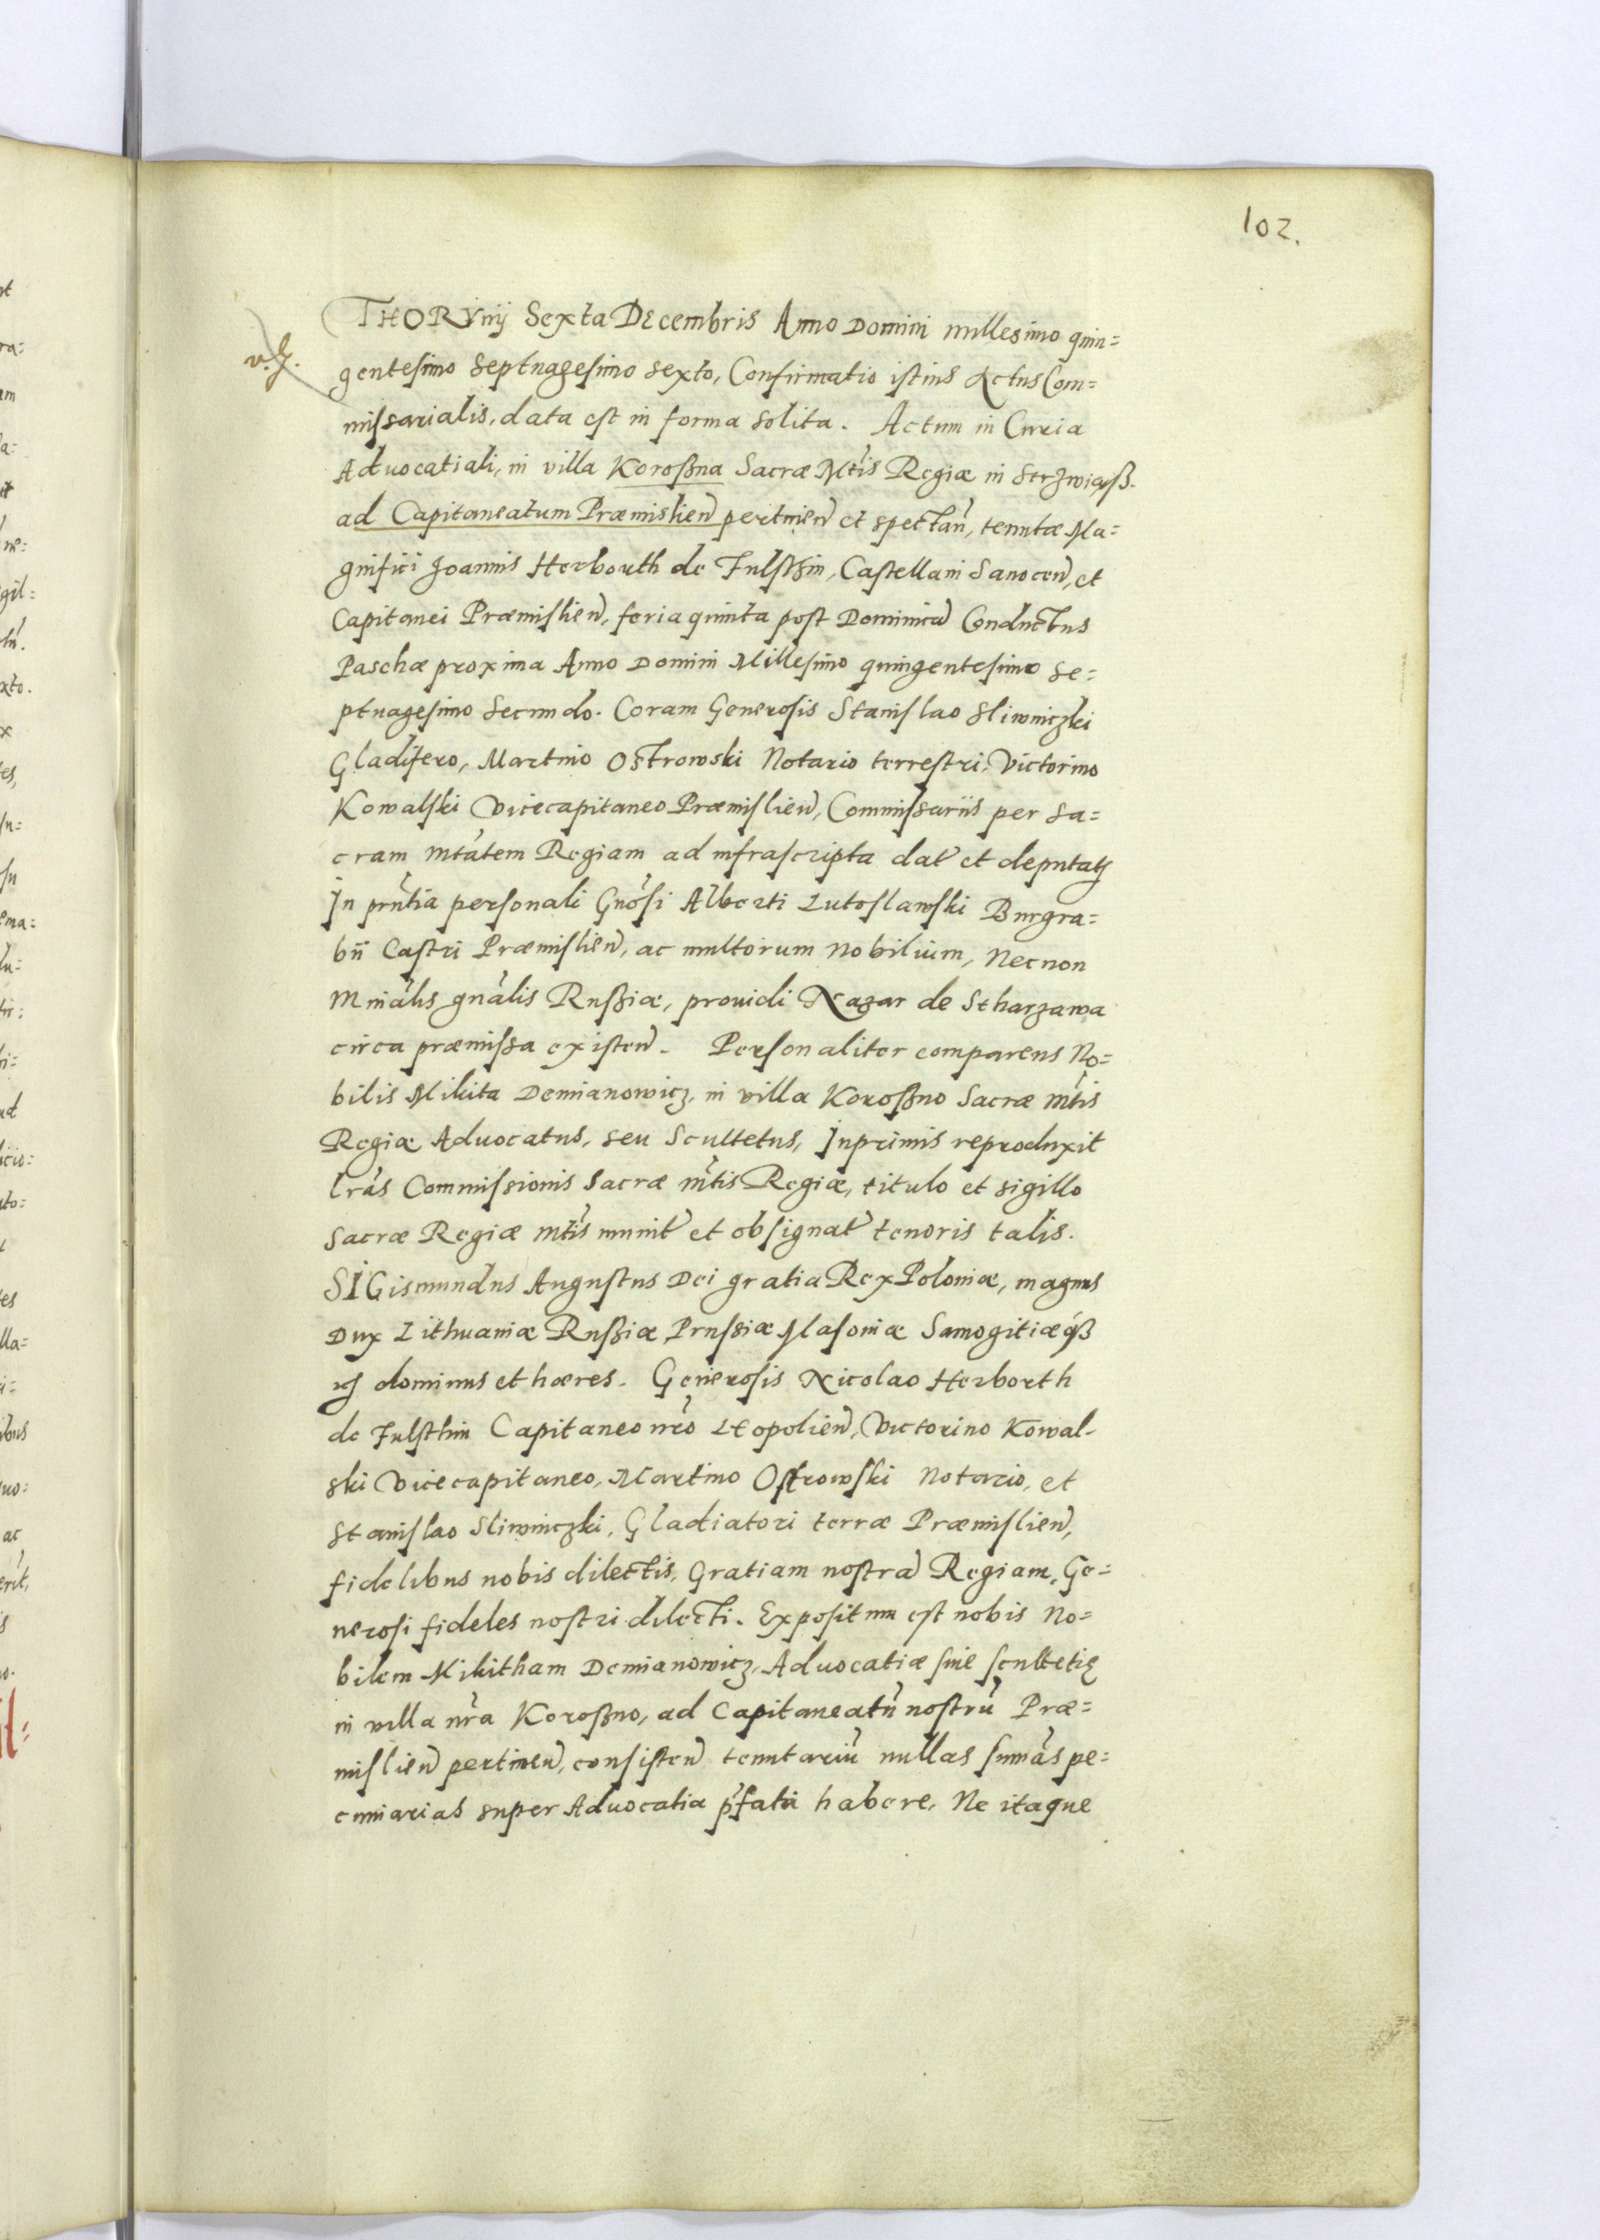 102.
THORVnij Sexta Decembris Anno Domini millesimo quin=
gentesimo Septuagesimo sexto, Confirmatio istius ActusCom=
missarialis, data est in forma solita. Actum in Curia
Aduocatiali, in villa Koroßna Sacræ Mtis Regiæ in
ad Capitaneatum Præmislien pertinen et spectan, tenutæ Ma=
gnifici Joannis Herbourth de Fulsthin, Castellani Sanocen, et
Capitanei Præmislien, feria quinta post Dominica Conductus
Paschæ proxima Anno Domini Millesimo quingentesimo se=
ptuagesimo Secundo. Coram Generosis Stanislao Sliwniczki
Gladifero, Martino Ostrowski Notario terrestri, Victorino
Kowalski Vicecapitaneo Præmislien, Commissariis per sa=
cram mtatem Regiam ad infrascripta dat et deputatis
In pntia personali Gnosi Alberti Lutoslawski Burgra=
bii Castri Præmislien, ac multorum Nobilium, Necnon
Mnialis gnalis Rußiæ, prouidi Nazar de Stharzawa
circa præmissa existen. Personaliter comparens No=
bilis Mikita Demianowicz, in villa Koroßno Sacræ mtis
Regiæ Aduocatus, seu Scultetus, Inprimis reproduxit
lras Commissionis Sacræ mtis Regiæ, titulo et sigillo
Sacræ Regiæ mtis munit et obsignat tenoris talis.
SIGismundus Augustus Dei gratia Rex Poloniæ, magnus
Dux Lithuaniæ Rußiæ Prußiæ Masoniæ Samogitiæ
dominus et hæres. Generosis Nicolao Herborth
de Fulsthin Capitaneo nro Leopolien, Victorino Kowal-
ski Vicecapitaneo, Martino Ostrowski Notario, et
Stanislao Sliwniczki, Gladiatori terræ Præmislien,
fidelibus nobis dilectis, Gratiam nostra Regiam, Ge=
nerosi fideles nostri dilecti. Expositum est nobis No=
bilem Mikitham Demianowicz, Aduocatiæ siue scultetię
in villa nra Koroßno, ad Capitaneatu nostru Præ=
mislien pertinen, consisten tenutariu nullas sumas pe=
cuniarias super Aduocatia pfata habere, Ne itaque